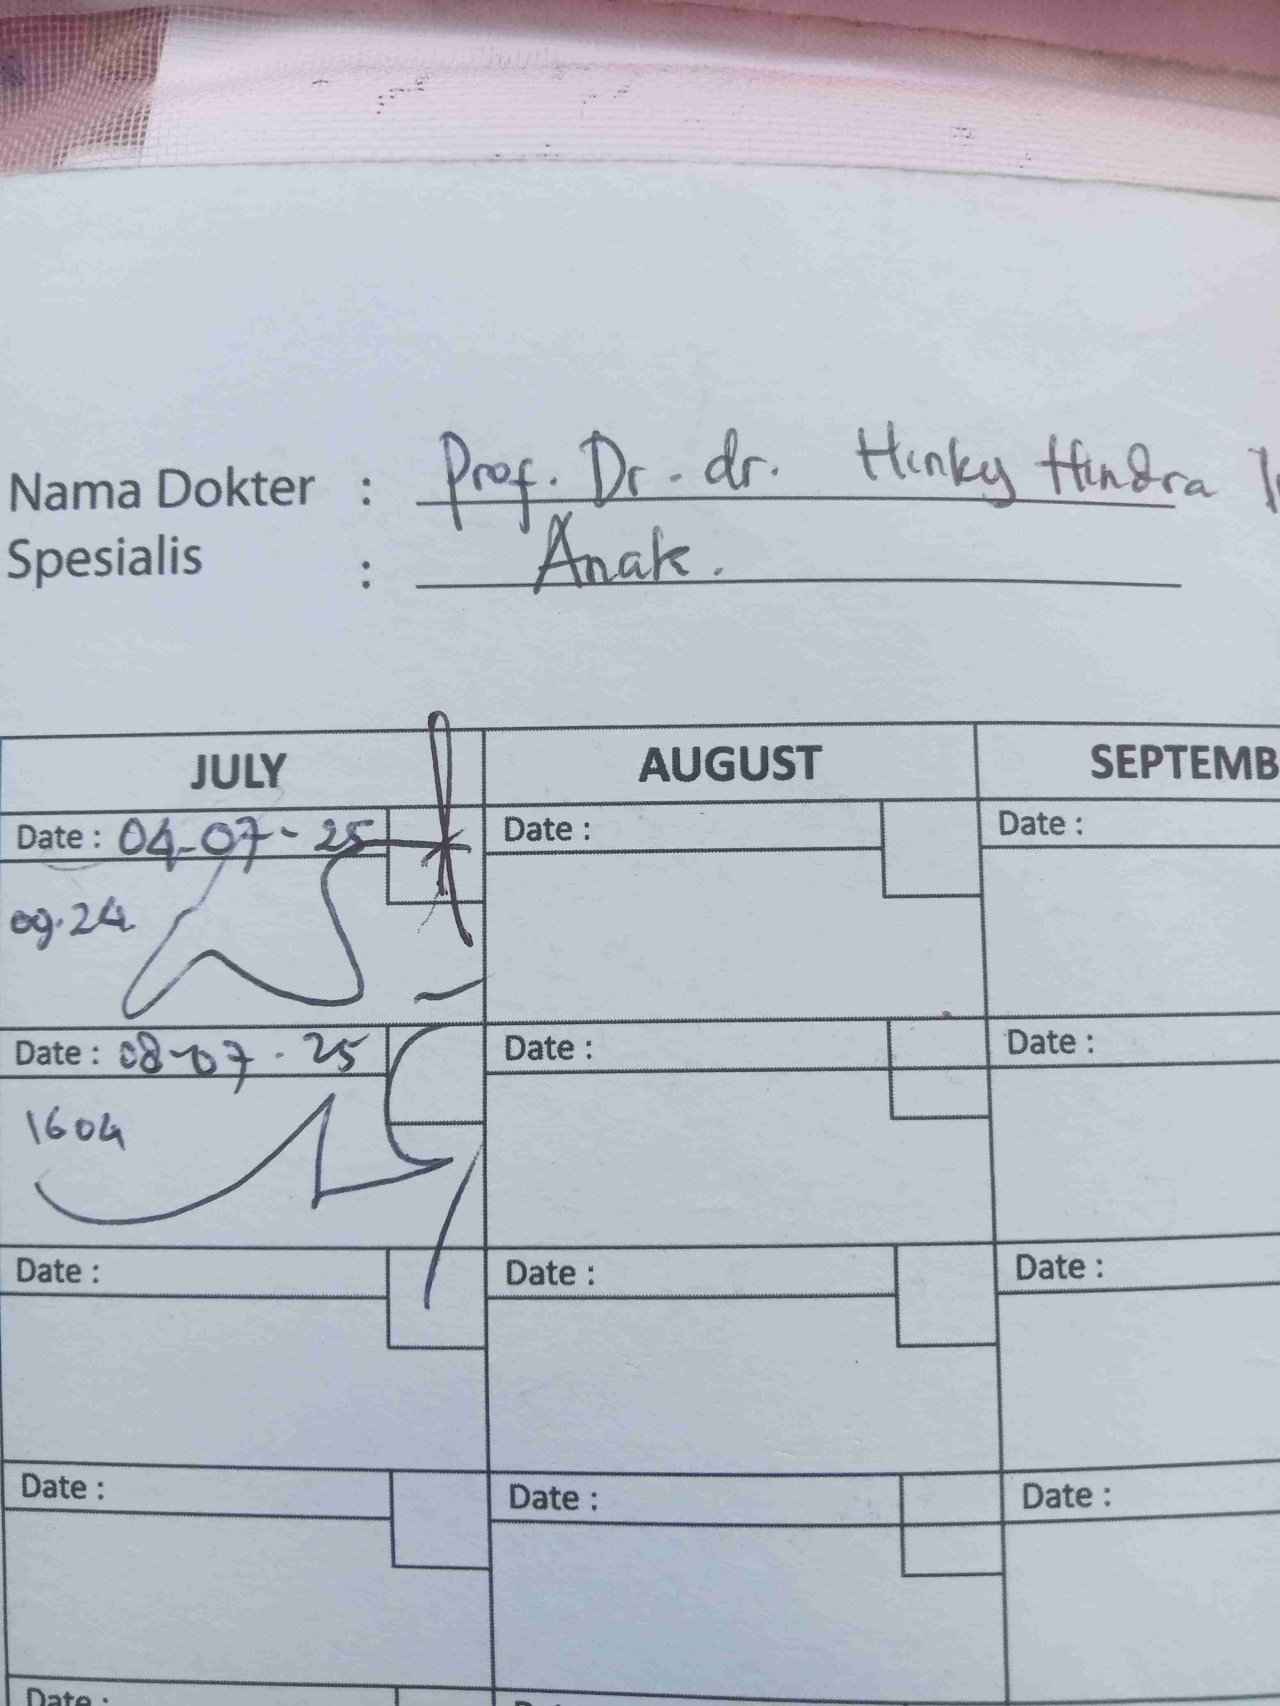 Nama Dokter : Prof. Dr. dr. Hinky Hindra
Spesialis : Anak.
JULY AUGUST SEPTEMB
Date : 04-07-25 Date : Date :
09.24
Date : 08-07-25 Date : Date :
1604
Date : Date : Date :
Date : Date : Date :
Date :